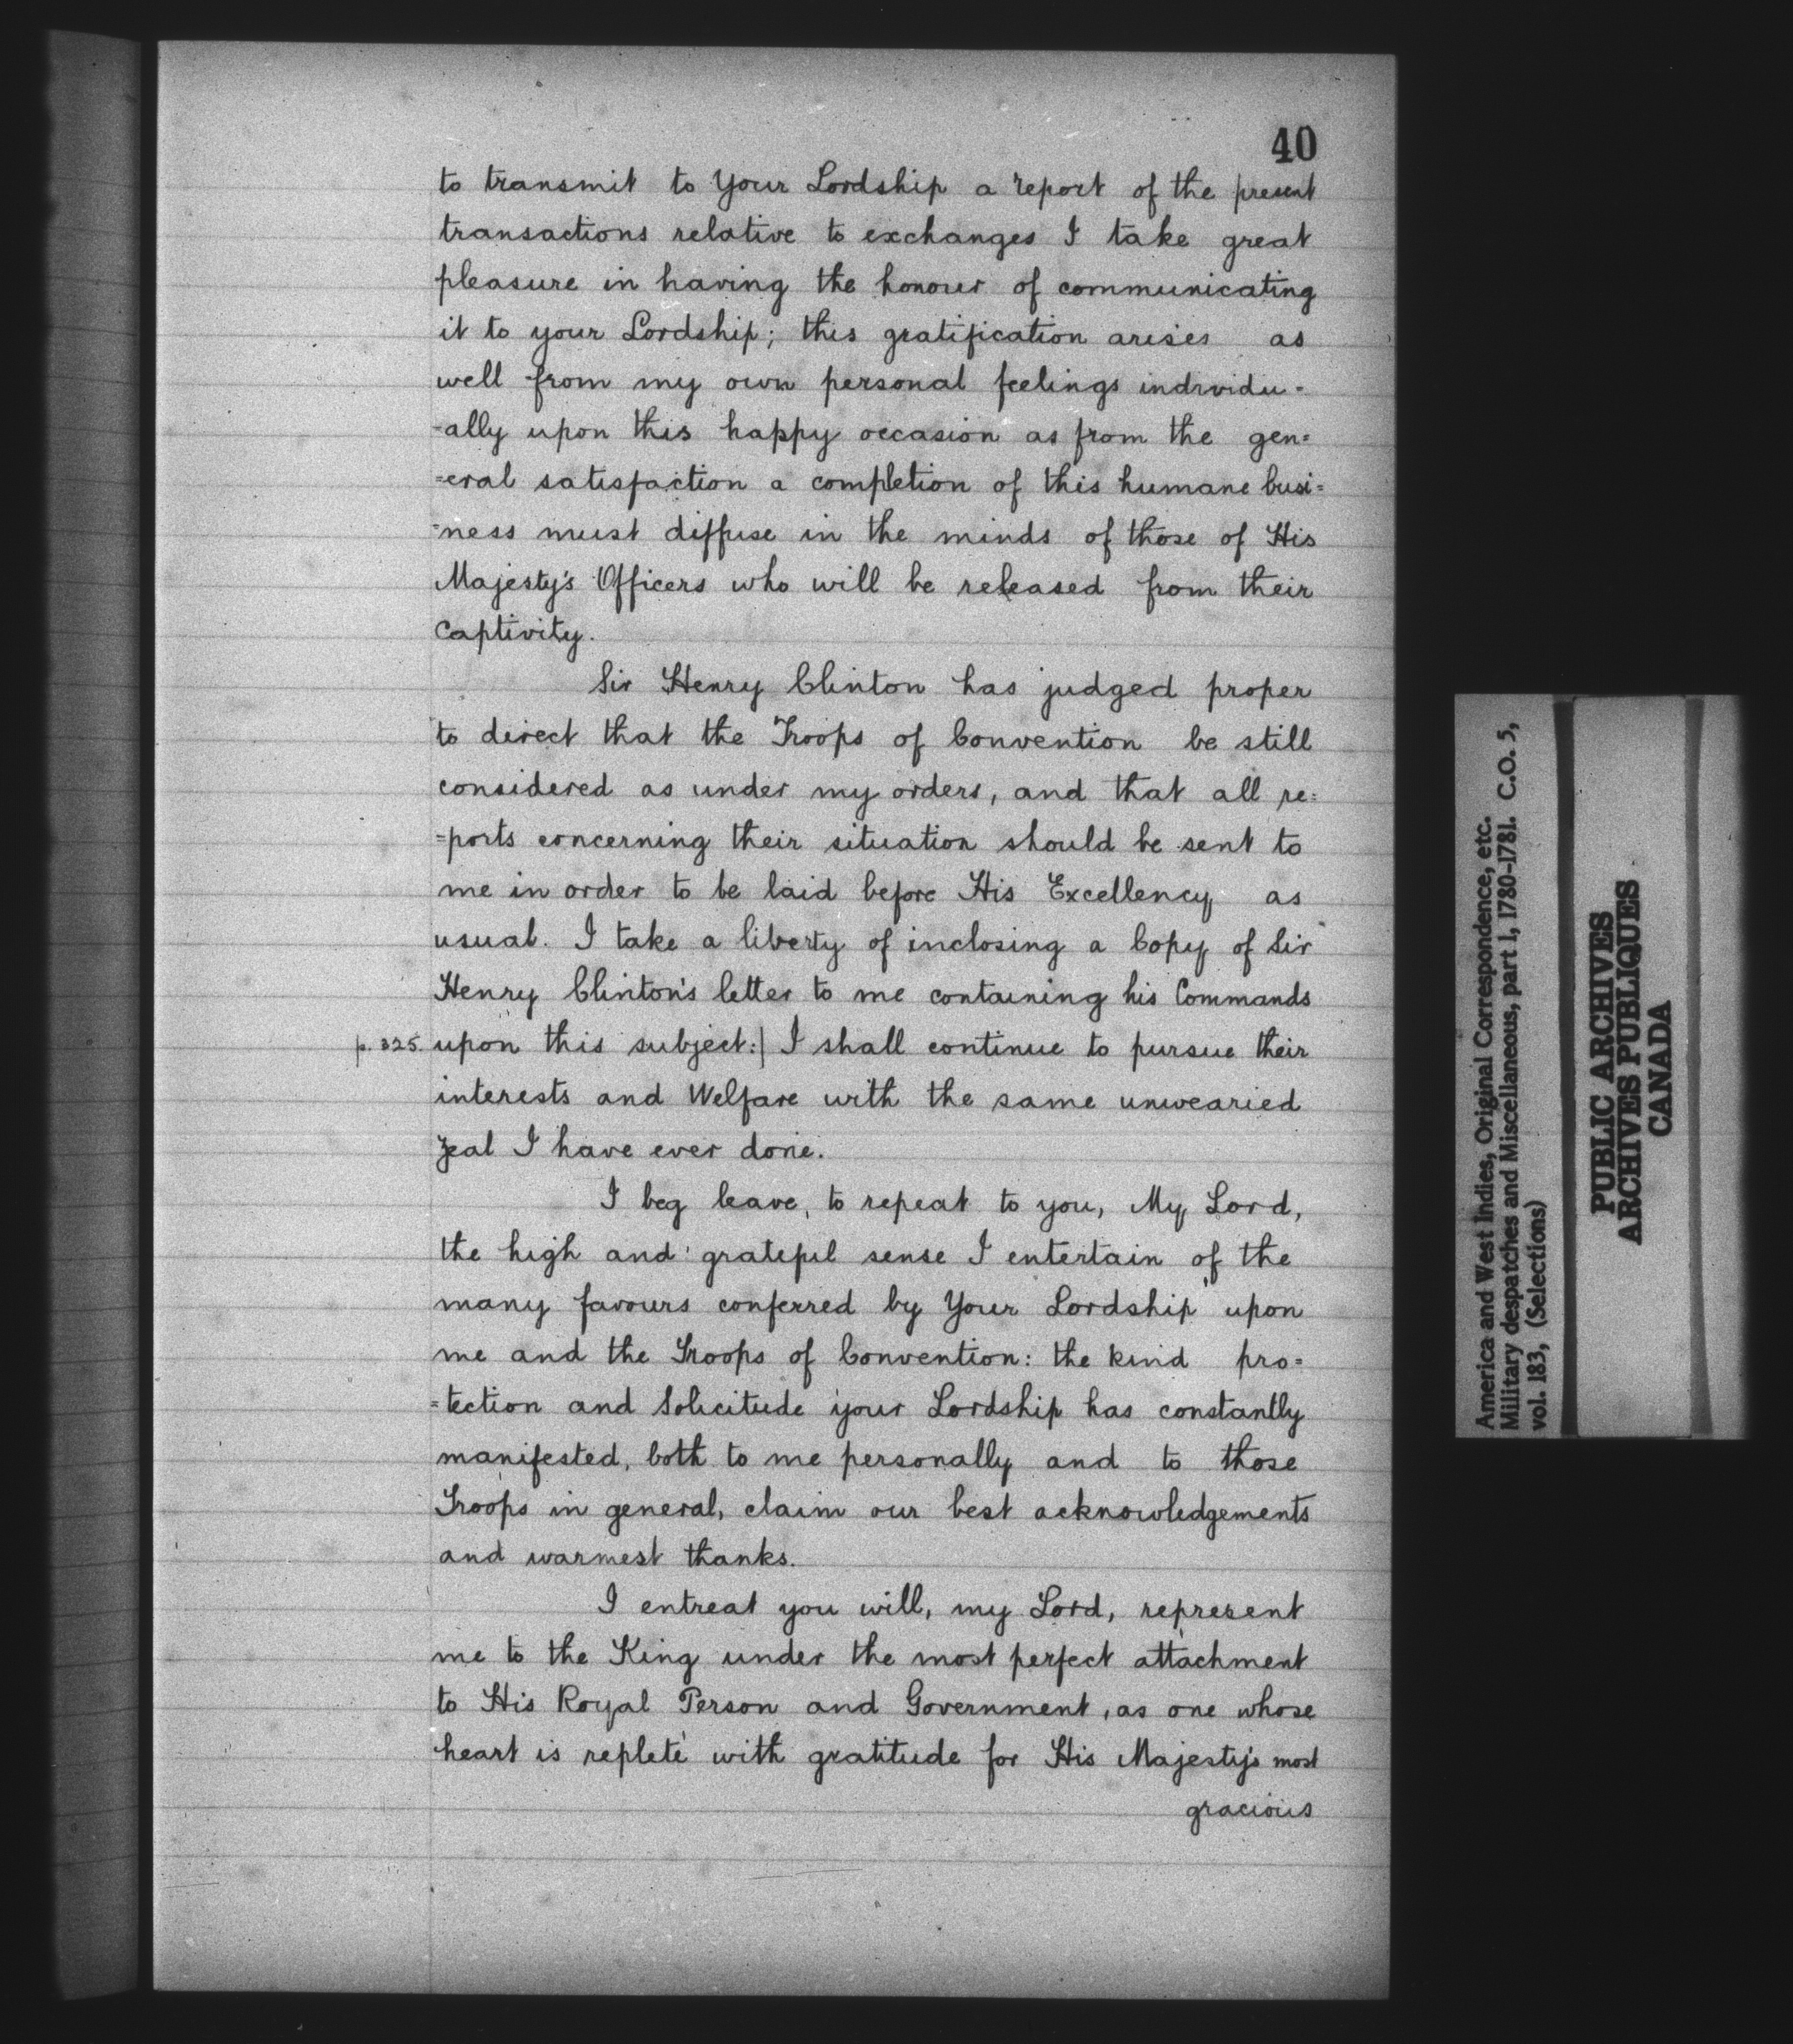 40
to transmit to Your Lordship a report of the present
transactions relative to exchanges I take great
pleasure in having the honour of communicating
it to your Lordship; this gratification arises as
well from my own personal feelings individu=
-ally upon this happy occasion as from the gen=
=eral satisfaction a completion of this humane busi=
=ness must diffuse in the minds of those of His
Majesty's Officers who will be released from their
Captivity.
Sir Henry Clinton has judged proper
to direct that the Troops of Convention be still
considered as under my orders, and that all re=
=ports concerning their situation should be sent to
me in order to be laid before His Excellency as
usual. I take a liberty of inclosing a Copy of Sir
Henry Clinton's letter to me containing his Commands
p. 325. upon this subject:| I shall continue to pursue their
interests and Welfare with the same unwearied
zeal I have ever done.
I beg leave, to repeat to you, My Lord,
the high and grateful sense I entertain of the
many favours conferred by Your Lordship upon
me and the Troops of Convention: the kind pro=
=tection and Solicitude your Lordship has constantly
manifested, both to me personally and to those
Troops in general, claim our best acknowledgements
and warmest thanks.
I entreat you will, my Lord, represent
me to the King under the most perfect attachment
to His Royal Person and Government, as one whose
heart is replete with gratitude for His Majesty's most
gracious
America and West Indies, Original Correspondence, etc.
Military despatches and Miscellaneous, part 1, 1780-1781. C.O. 5,
vol. 183, (Selections)
PUBLIC ARCHIVES
ARCHIVES PUBLIQUES
CANADA